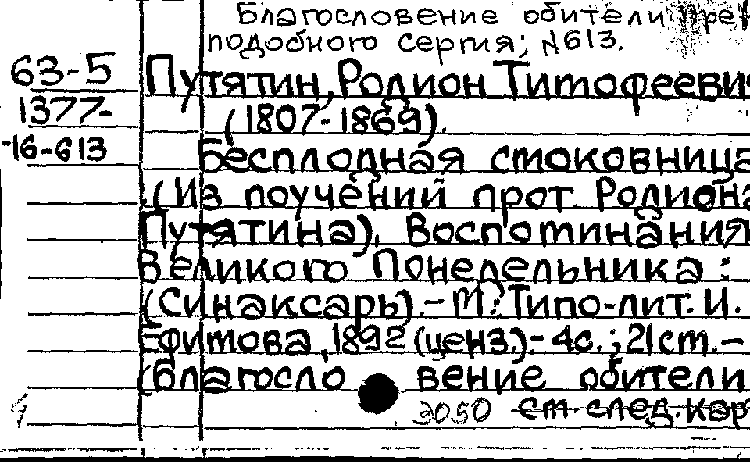 Благословение обители пре
подобного Сергия; №613.
63-5 Путятин, Родион Тимофееви
1377- (1807-1869).
-16-613 Бесплодная смоковница
.(Из поучений прот. Родиона
Путятина). Воспоминания
Великого Понедельника:
(Синаксарь).- М.: Типо-лит. И.
Ефимова, 1892 (ценз.).- 4с.; 21см.-
(Благословение обители
2050 см. след. кар